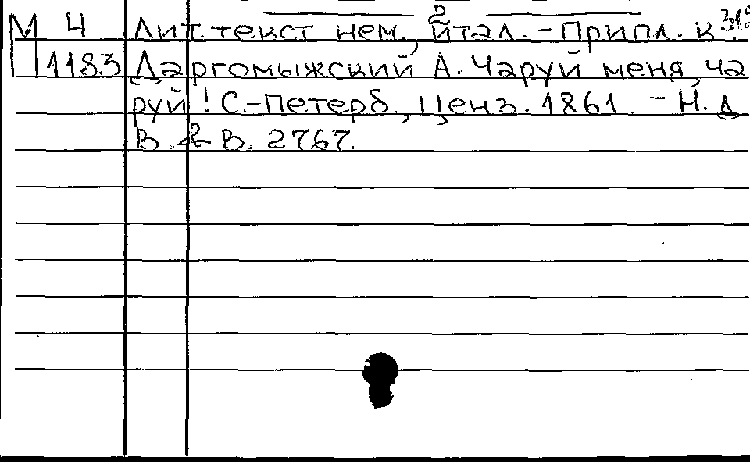 М 4 Лит. текст нем., итал. – Припл. к
1183 Даргомыжский А. Чаруй меня, ча
руй! С.-Петерб., Ценз. 1861 – Н. д.
В. & В. 2767.